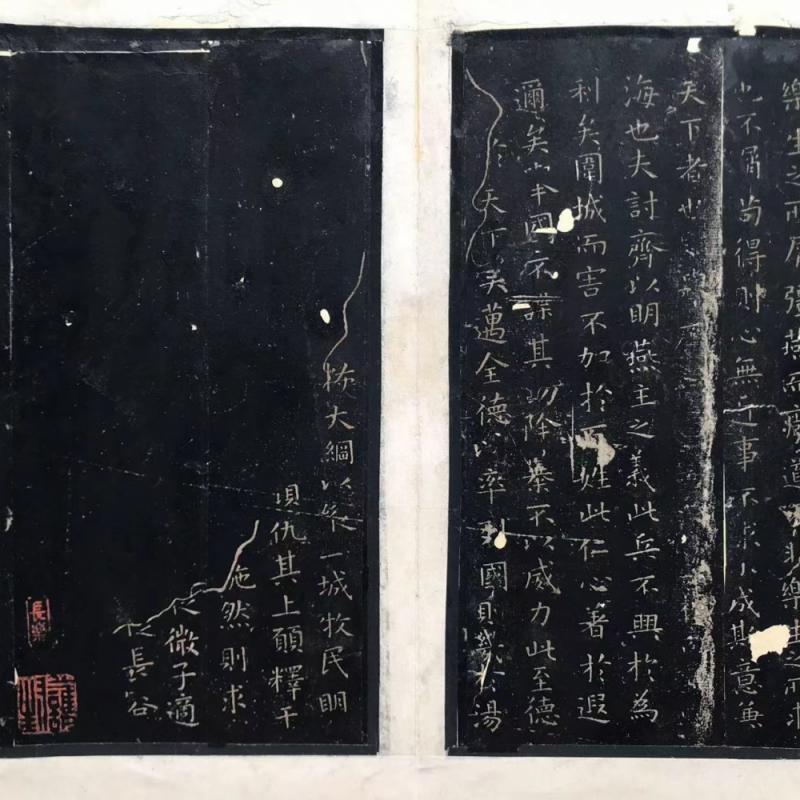 樂生之所屑彊燕而廢道又非樂生之所求
也不屑苟得則心無近事不求小成斯意兼
天下者也
海也夫討齊以明燕主之義此兵不興於為
利矣圍城而害不加於百姓此仁心著於遐
邇矣舉國不謀其功除暴不以威力此至德
於天下矣邁全德以率列國則幾於湯
恢大綱以縱二城牧民明
仇其上願釋干
施然則求
從微子適
以長容
長樂